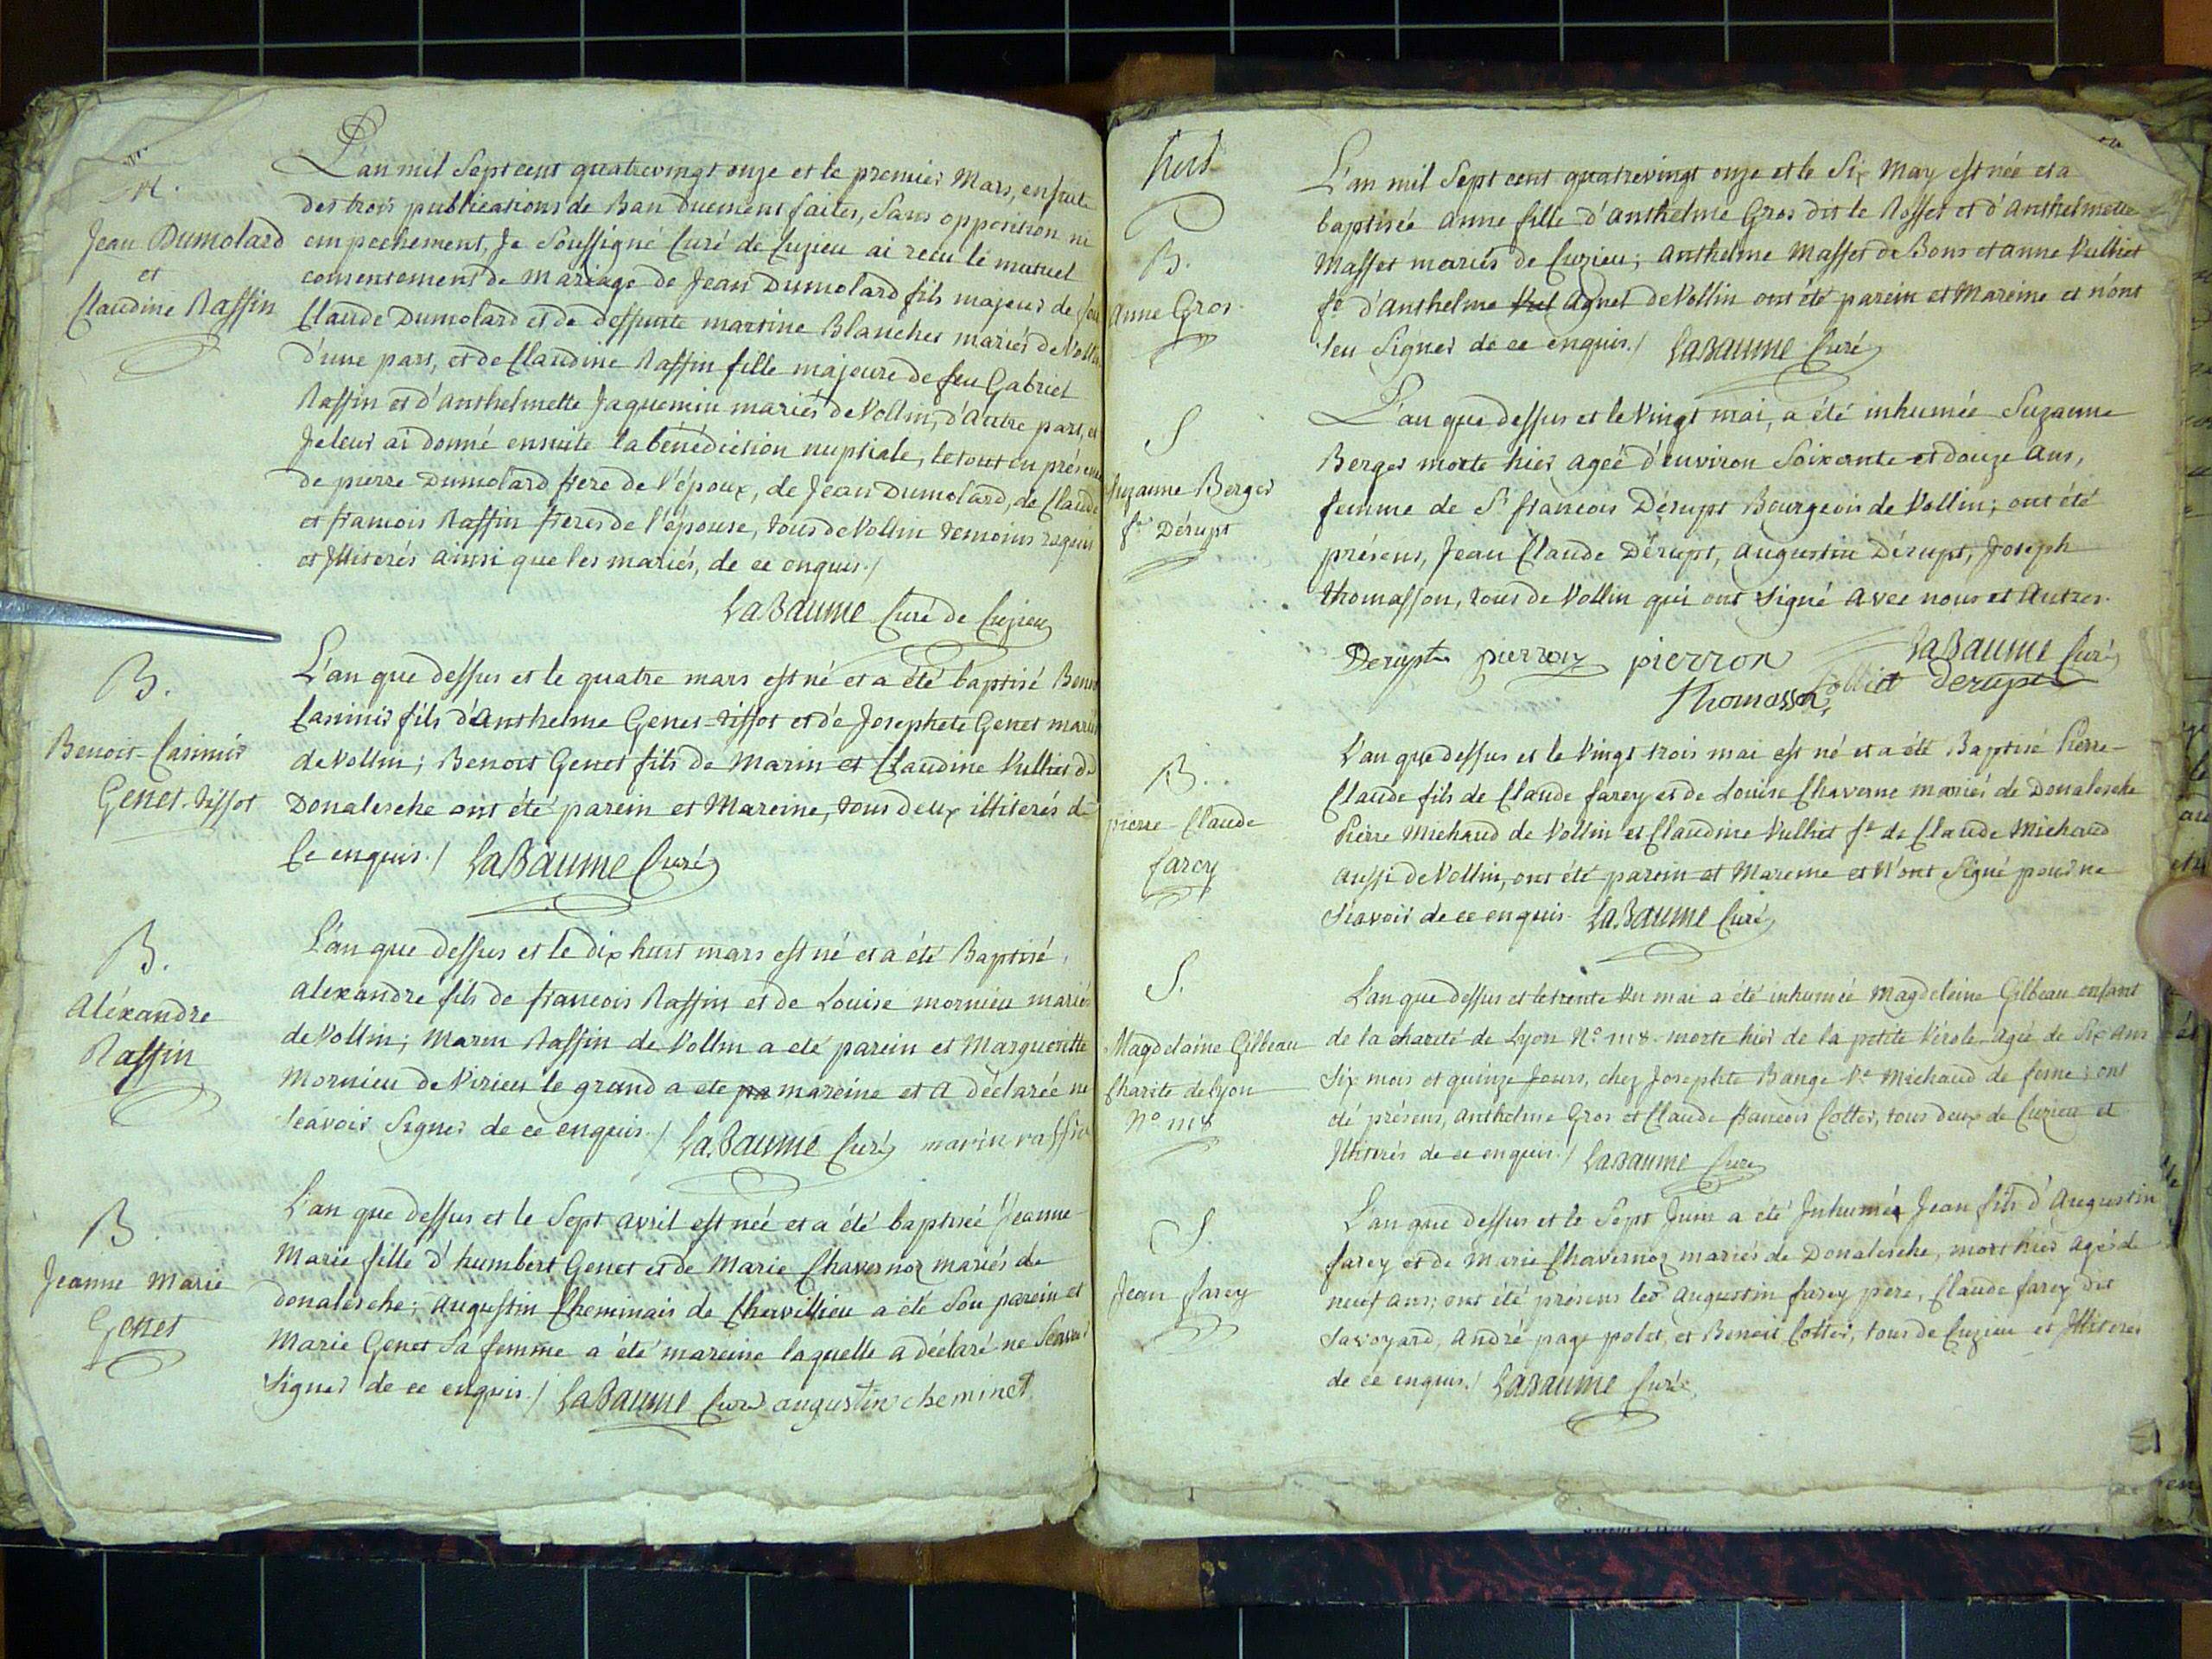 M.
Jean Dumolard
et
Claudine Raffin
L'an mil Sept cent quatrevingt onze et le premier Mars, ensuite
des trois publications de Ban duement faites, Sans opposition ni
empechement, Je Soussigné Curé de Cuzieu ai reçu le mutuel
consentement de Mariage de Jean Dumolard fils majeur de feu
Claude Dumolard et de deffunte martine Blanchet mariés de Vollin
d'une part, et de Claudine Raffin fille majeure de feu Gabriel
Raffin et d'Anthelmette Jaquemin mariés de Vollin, d'Autre part, et
Je leur ai donné ensuite la bénédiction nuptiale, le tout en présence
de pierre Dumolard frere de l'époux, de Jean Dumolard, de Claude
et francois Raffin freres de l'épouse, tous de Vollin temoins requis
et Illiterés ainsi que les mariés, de ce enquis./
LaBaume Curé de Cuzieu
B.
Benoit-Casimir
Genet-tissot
L'an que dessus et le quatre mars est né et a été baptisé Benoit
Casimir fils d'Anthelme Genet-tissot et de Josephete Genet mariés
de Vollin; Benoit Genet fils de Marin et Claudine Vulliet de
Donalesche ont été parein et Mareine, tous deux illiterés de
Ce enquis./ LaBaume Curé
B.
Aléxandre
Raffin
L'an que dessus et le dix huit mars est né et a été Baptisé
alexandre fils de francois Raffin et de Louise mornieu mariés
de Vollin; Marin Raffin de Vollin a eté parein et Margueritte
Mornieu de Virieu le grand a ete pa mareine et a déclarée ne
Scavoir Signer de ce enquis./ LaBaume Curé marin raffin
B.
Jeanne Marie
Genet
L'an que dessus et le Sept avril est née et a été baptisée Jeanne-
Marie fille d'humbert Genet et de Marie Chavernoz mariés de
donalesche; Augustin Cheminais de Chervillieu a été Son parein et
Marie Genet Sa femme a été mareine laquelle a déclaré ne Scavoir
Signer de ce enquis./ LaBaume Curé augustin cheminet
huit
B.
Anne Gros
L'an mil Sept cent quatrevingt onze et le Six May est née et a
baptisée Anne fille d'anthelme Gros dit le Rosset et d'Anthelmette
Masset mariés de Cuzieu; Anthelme Masset de Bons et anne Vulliet
fe d'Anthelme Vul Agnel de Vollin ont été parein et Mareine et n'ont
Seu Signer de ce enquis./ LaBaume Curé
S
Suzanne Berger
fe Dérupt
L'an que dessus et le Vingt mai, a été inhumée Suzanne
Berger morte hier ageé d'environ Soixante et douze Ans,
femme de Sr francois Dérupt Bourgeois de Vollin; ont été
présens, Jean Claude Dérupt, Augustin Dérupt, Joseph
Thomasson, tous de Vollin qui ont Signé avec nous et Autres.
Derupt pierron pierron LaBaume Curé
Thomasson derupt
B.
Pierre-Claude
farcy
L'an que dessus et le Vingt trois mai est né et a été Baptisé Pierre-
Claude fils de Claude farcy et de Louise Chaverne mariés de Donalesche
Pierre Michaud de Vollin et Claudine Vulliet fe de Claude Michaud
Aussi de Vollin, ont été parein et Mareine et n'ont Signé pour ne
Scavoir de ce enquis. LaBaume Curé
S.
Magdelaine Gilbeau
Charité de Lyon
No 1118
L'an que dessus et le trente Un mai a été inhumée Magdeleine Gilbeau enfant
de la charité de Lyon No 1118. morte hier de la petite Vérole agée de Six Ans
Six mois et quinze Jours, chez Josephte Bange Ve Michaud de ferne; ont
été présens, Anthelme Gros et Claude francois Cotter, tous deux de Cuzieu et
Illiterés de ce enquis./ LaBaume Curé
S.
Jean farcy
L'an que dessus et le Sept Juin a été Inhumé Jean fils d'Augustin
farcy et de Marie Chavernoz mariés de Donalesche, mort hier agé de
neuf ans; ont été présens led Augustin farcy pere, Claude farcy dit
Savoyard, André page polet, et Benoit Cotter, tous de Cuzieu et Illiterés
de ce enquis./ LaBaume Curé